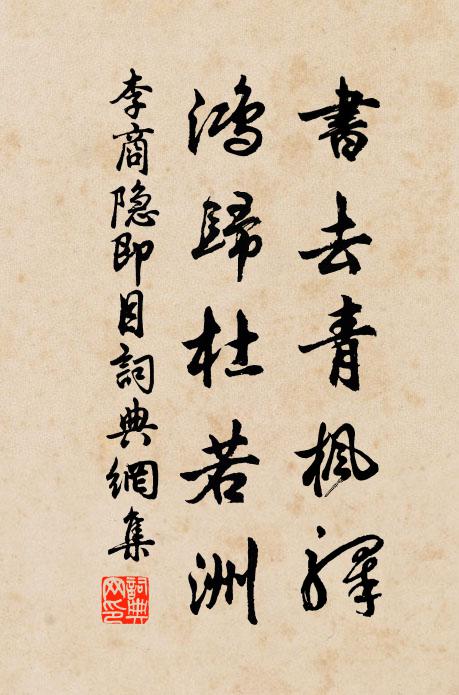 書去青楓驛
鴻歸杜若洲
李商隐即目詞典網集
詞典网印